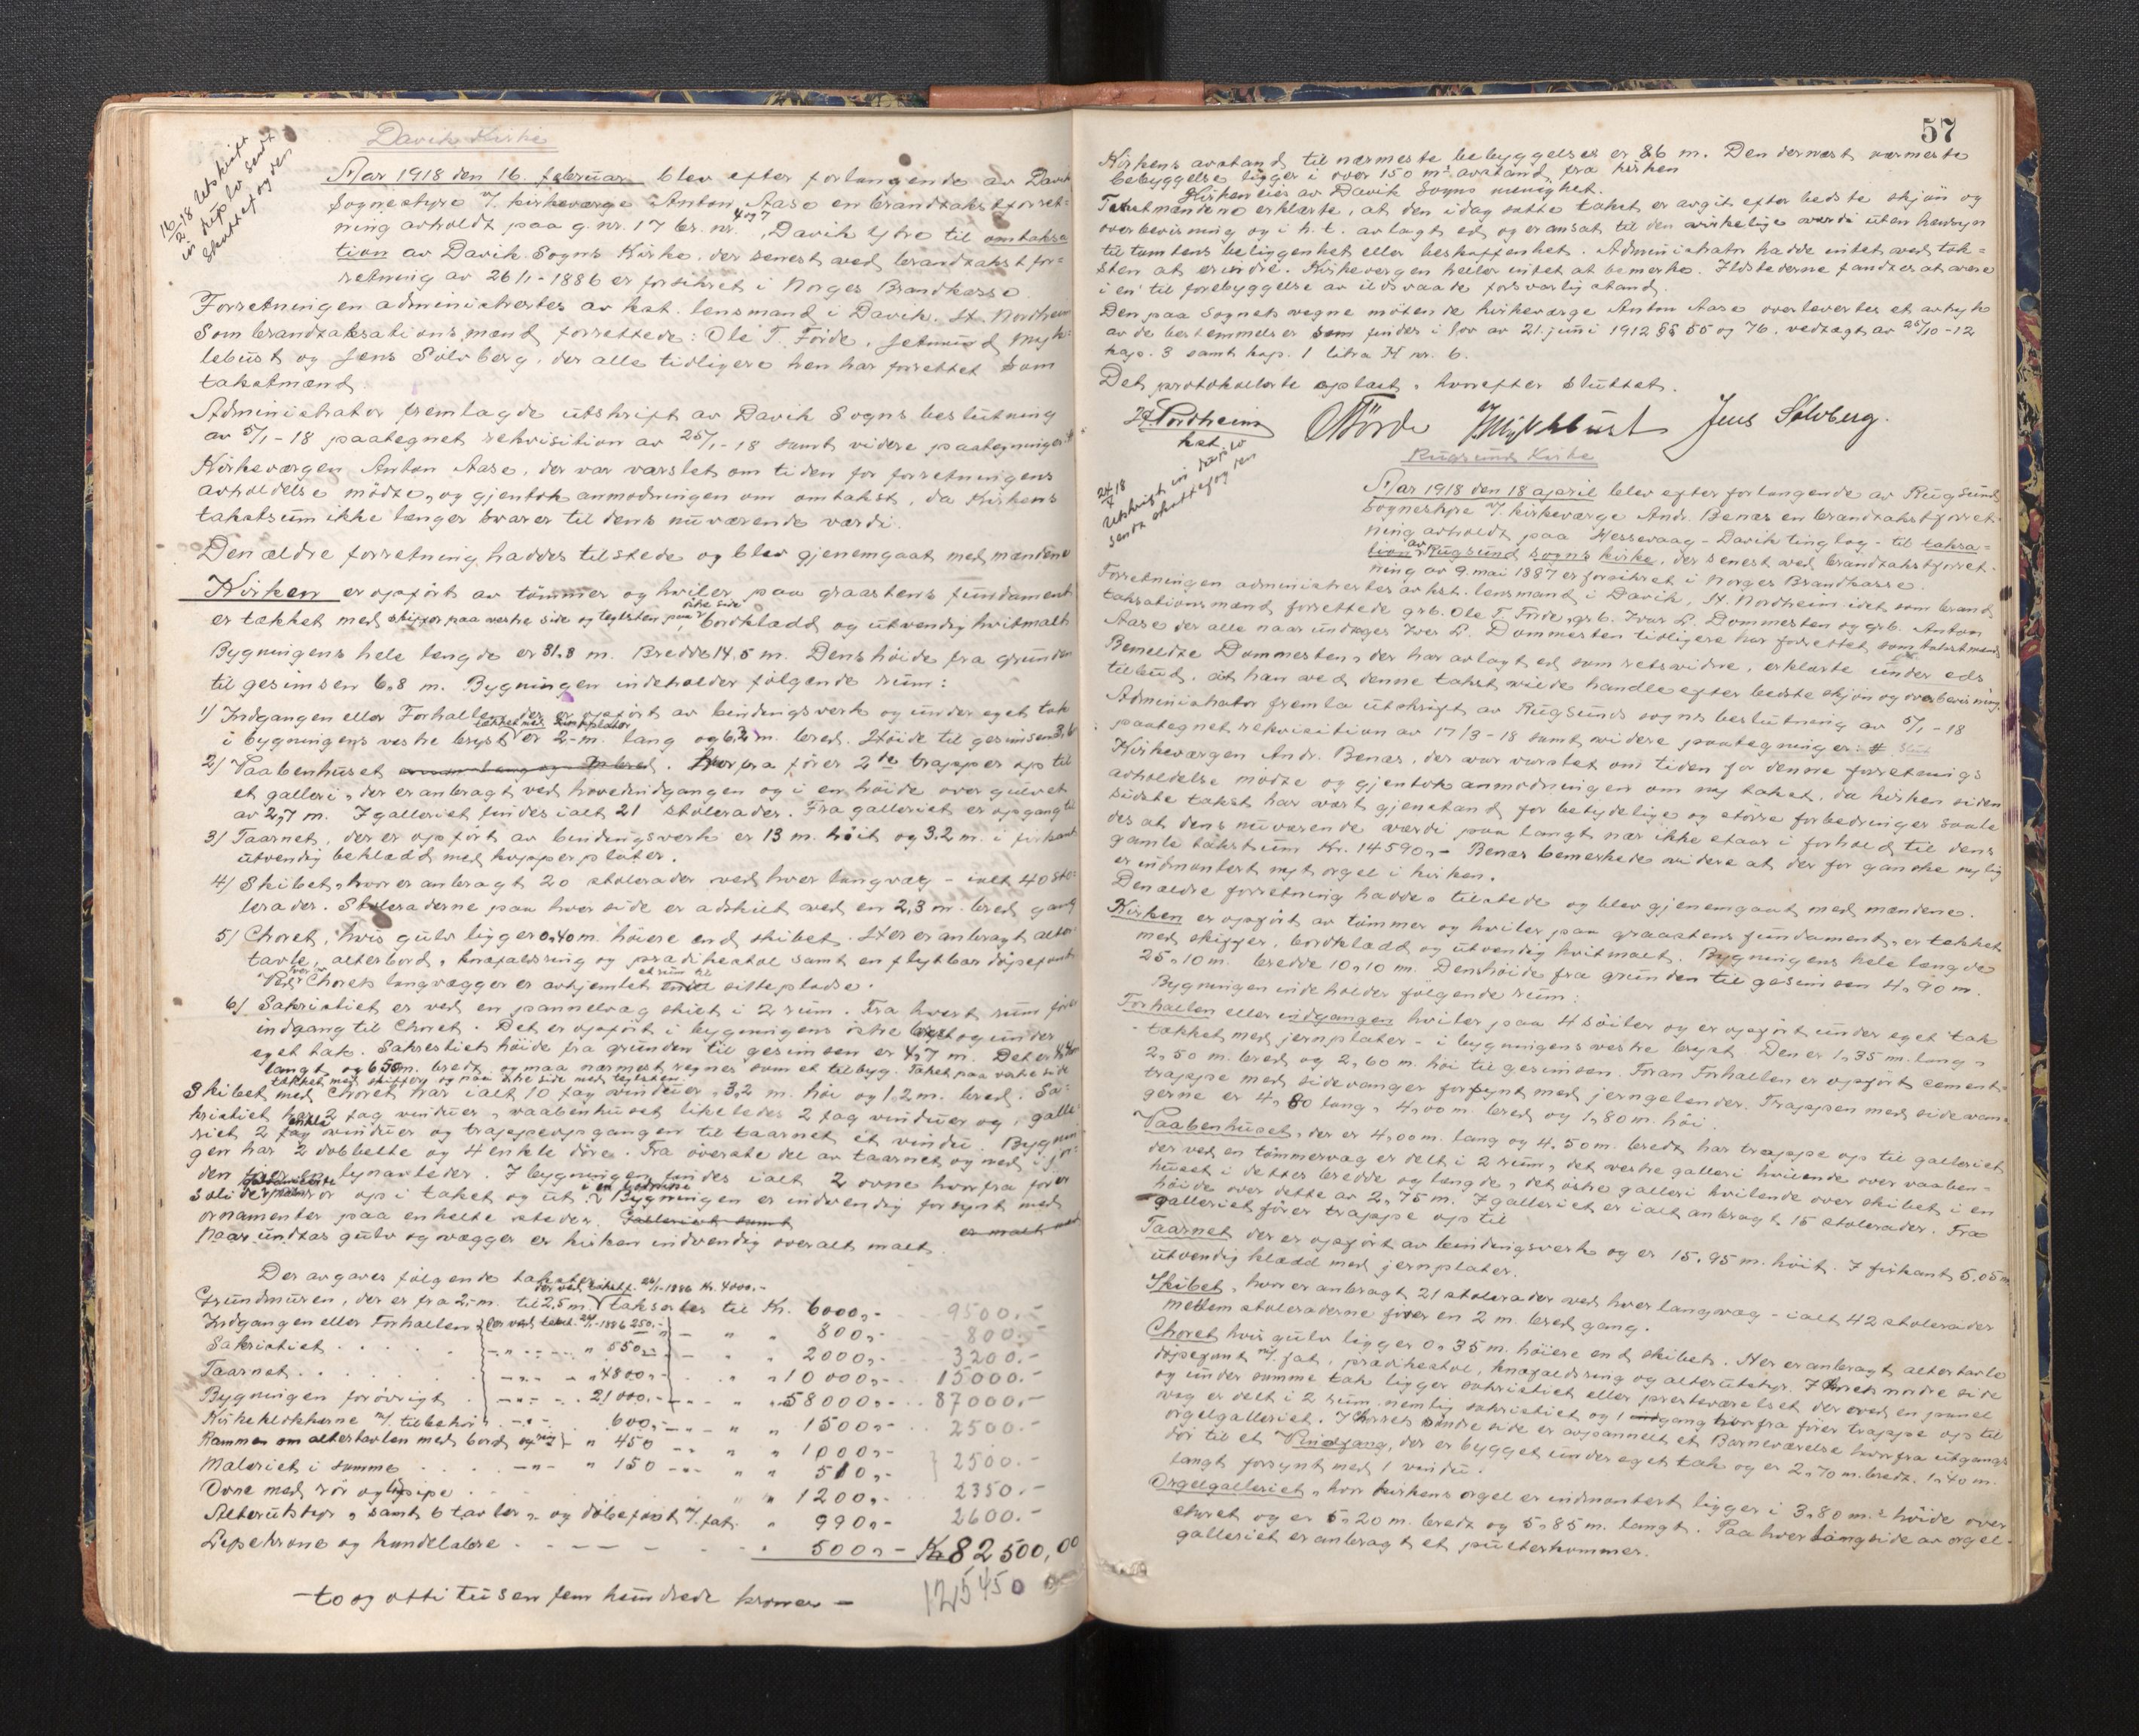 Davik Kirke
16/2-18 Utskrift
in duplo sendt
skattefogden
Aar 1918 den 16. februar blev efter forlangende av Davik
sognestyre v/ kirkeværge Anton Aase en brandtakstforret=
ning avholdt paa g.nr. 17 br. nr. 4 og 7, Davik Ytre til omtaksa
tion av Davik Sogns Kirke, der senest ved brandtakstfor=
retning av 26/1-1886 er forsikret i Norges Brandkasse.
Forretningen administrertes av kst. lensmand i Davik. H. Nordheim
Som brandtaksationsmænd forrettede: Ole T. Förde, Jetmund Myk=
lebust og Jens Sölvberg, der alle tidligere hen har forrettet som
takstmænd.
Administrator fremlagde utskrift av Davik Sogns beslutning
av 5/1-18 paategnet rekvisition av 25/1-18 samt videre paategninger.
Kirkeværgen Anton Aase, der var varslet om tiden for forretningens
avholdelse mödte, og gjentok anmodningen om omtakst, da Kirkens
takstsum ikke længer svarer til dens nuværende værdi.
Den ældre forretning haddes tilstede og blev gjenemgaat med mændene
Kirken er opfört av tömmer og hviler paa graastens fundament
er tækket med skiffer paa vestre side og teglsten paa östre side, bordklædd og utvendig hvitmalt
Bygningens hele længde er 31,8 m. Bredde 14,5 m. Dens höide fra grunden
til gesimsen 6,8 m. Bygningen indeholder fölgende rum:
1/ Indgangen eller Forhallen der er opfört av bindingsverk og under eget tak
tækket med zinkplater
i bygningens vestre bryst er 2- m. lang og 6,2 m. bred. Höide til gesimsen 3,6
2/ Vaabenhuset . Herfra förer 2de trapper op til
et galleri, der er anbragt ved hovedindgangen og i en höide over gulvet
av 2,7 m. I galleriet findes ialt 21 stolerader. Fra galleriet er opgang til
3/ Taarnet, der er opfört av bindingsverk er 13 m. höit og 3.2 m. i firkant
utvendig beklædd med kopperplater.
4/ Skibet, hvor er anbragt 20 stolerader ved hver langvæg - ialt 40 sto=
lerader. Stoleraderne paa hver side er adskilt ved en 2,3 m. bred gang
5/ Choret, hvis gulv ligger 0,40 m. höiere end skibet. Her er anbragt alter=
tavle, alterbord, knæfaldsring og prædikestol samt en flytbar döpefont
Ved hver av Chorets langvægger er avskjemlet et rum til sittepladse.
6/ Sakristiet er ved en pannelvæg skilt i 2 rum. Fra hvert rum förer
indgang til Choret. Det er opfört i bygningens östre bryst og under
eget tak. Sakristiets höide fra grunden til gesimsen er 4,7 m. Det er 4,40
langt og 6,55 m. bredt og maa nærmest regnes som et tilbyg. Taket paa vestre side
tækket med skiffer og paa östre side med teglsten.
Skibet med Choret har ialt 10 fag vinduer, 3,2 m. höi og 1,2 m. bred. Sa=
kristiet har 2 fag vinduer, vaabenhuset likeledes 2 fag vinduer og galle=
riet 2 enkle vinduer og trappeopgangen til taarnet et vindu. Bygnin
gen har 2 dobbelte og 4 enkle döre. Fra överste del av taarnet og ned i jor=
den förer en lynavleder. I bygningen findes ialt 2 ovne hvorfra förer
solide jernrör op i taket og ut. Bygningen er indvendig forsynt med
ornamenter paa enkelte steder. Galleriet samt er malt med
Naar undtas gulv og vægger er kirken indvendig overalt malt.
Der avgaves fölgende takster:
for ved takstf. 26/1-1886 kr. 4000.-
Grundmuren, der er fra 2,- m. til 2,5 m. taksertes til Kr. 6000,- 9500.-
Indgangen eller Forhallen for ved takst. 26/1-1886 250.- - " " 800,- 800.-
Sakristiet . . . . . -"- -"- " 550,- - " " 2000,- 3200.-
Taarnet . . . . . -"- -"- " 4800,- . " 10000,- 15000.-
Bygningen forövrigt . -"- -"- . 21000.- - " " 58000,- .. 87000.-
Kirkeklokkerne m/ tilbehör . -"- . 600,- - " " 1500,- .. 2500.-
Rammen om altertavlen med bord og ring " 450 - " " 1000,-
Maleriet i samme . . . . -"- " 150 -"- " " 510,- } 2500.-
Ovne med rör og pipe . . . . " " 1200,- .. 2350.-
Alterutstyr, samt 6 tavler, og döbefont m/ fat. " 990,- 2600.-
Lysekrone og kandelabre . - - - - . . 500,- Kr 82500,00
125450
-to og otti tusen fem hundrede kroner -
57
Kirkens avstand til nærmeste bebyggelses er 86 m. Den dernæst nærmeste
bebyggelse ligger i over 150 m.s avstand fra kirken
Kirken eies av Davik Sogns menighet.
Takstmændene erklærte, at den idag satte takst er avgit efter bedste skjön og
overbevisning og i h. t. avlagt ed og er ansat til den virkelige værdi uten hensyn
til tomtens beliggenhet eller beskaffenhet. Administrator hadde intet ved tak=
sten at erindre. Kirkevergen heller intet at bemerke. Ildstederne fandtes at være
i en til forebyggelse av ildsvaade forsvarlig stand.
Den paa Sognets vegne mötende kirkeværge Anton Aase overlevertes et avtryk
av de bestemmelser som findes i lov av 21. juni 1912 §§ 55 og 76, vedtægt av 25/10-12
kap. 8 samt kap. 1 litra H nr. 6.
Det protokollerte oplæst, hvorefter sluttet.
H. Nordheim
kst.
O T Förde J Myklebust Jens Sölvberg.
24/7 18
Utskrift in duplo
sendt skattefogden
Rugsund Kirke
Aar 1918 den 18 april blev efter forlangende av Rugsund
sognestyre v/ kirkeværge Andr. Benæs en brandtakstforret=
ning avholdt paa Hessevaag - Davik tinglag - til taksa=
tion av Rugsund sogns kirke, der senest ved brandtakstforret=
ning av 9. mai 1887 er forsikret i Norges Brandkasse.
Forretningen administrertes av kst. lensmand i Davik, H. Nordheim idet som brand
taksationsmænd forrettede grb. Ole T. Förde, grb. Ivar L. Dommesten og grb. Anton
Aase der alle naar undtages Iver L. Dommesten tidligere har forrettet som takstmænd
Bemeldte Dommesten, der har avlagt ed som retsvidne, erklærte under eds
tilbud, at han ved denne takst vilde handle efter bedste skjön og overbevisning.
Administrator fremla utskrift av Rugsunds sogns beslutning av 5/1-18
paategnet rekvisition av 17/3-18 samt videre paategninger: #
Kirkeværgen Andr. Benæs, der var varslet om tiden for denne forretnings
avholdelse mödte og gjentok anmodningen om ny takst, da kirken siden
sidste takst har vært gjenstand for betydelige og större forbedringer saale
des at dens nuværende værdi paa langt nær ikke staar i forhold til dens
gamle takstsum Kr. 14590,- Benæs bemerkede videre at der for ganske nylig
er indmontert nyt orgel i kirken.
Den ældre forretning haddes tilstede og blev gjenemgaat med mændene.
Kirken er opfört av tömmer og hviler paa graastens fundament, er tækket
med skiffer, bordklædt og utvendig hvitmalt. Bygningens hele længde
25,10 m. bredde 10,10 m. Dens höide fra grunden til gesimsen 4,90 m.
Bygningen indeholder fölgende rum:
Forhallen eller indgangen hviler paa 4 söiler og er opfört under eget tak
- tækket med jernplater - i bygningens vestre bryst. Den er 1,35 m. lang,
2,50 m. bred og 2,60 m. höi til gesimsen. Foran Forhallen er opfört cement=
trappe med sidevanger forsynt med jerngelender. Trappen med sidevan=
gerne er 4,80 lang, 4,00 m. bred og 1,80 m. höi.
Vaabenhuset, der er 4,00 m. lang og 4,50 m. bredt har trappe op til galleriet
der ved en tömmervæg er delt i 2 rum, det vestre galleri hvilende over vaaben=
huset i dettes bredde og længde, det östre galleri hvilende over skibet i en
höide over dette av 2,75 m. I galleriet er ialt anbragt 15 stolerader. Fra
galleriet förer trappe op til
Taarnet der er opfört av bindingsverk og er 15,95 m. höit. I firkant 5,05 m
utvendig klædd med jernplater.
Skibet, hvor er anbragt 21 stolerader ved hver langvæg - ialt 42 stolerader
mellem stoleraderne förer en 2 m. bred gang.
Choret hvis gulv ligger 0,35 m. höiere end skibet. Her er anbragt altertavle
döpefont m/ fat, prædikestol, knæfaldsring og alterutstyr. I Korets nordre side
og under samme tak ligger sakristiet eller presteværelset der ved en panel
væg er delt i 2 rum, nemlig sakristiet og 1 gang hvorfra förer trappe op til
orgelgalleriet. I Korets söndre side er avpannelt et Barneværelse hvorfra utgangs
dör til et Vindfang, der er bygget under eget tak og er 2,70 m. bredt. 1,40 m.
langt forsynt med 1 vindu.
Orgelgalleriet, hvor kirkens orgel er indmontert ligger i 3,80 m.s höide over
choret og er 5,20 m. bredt og 5,85 m. langt. Paa hver langside av orgel=
galleriet er anbragt et pulterkammer.